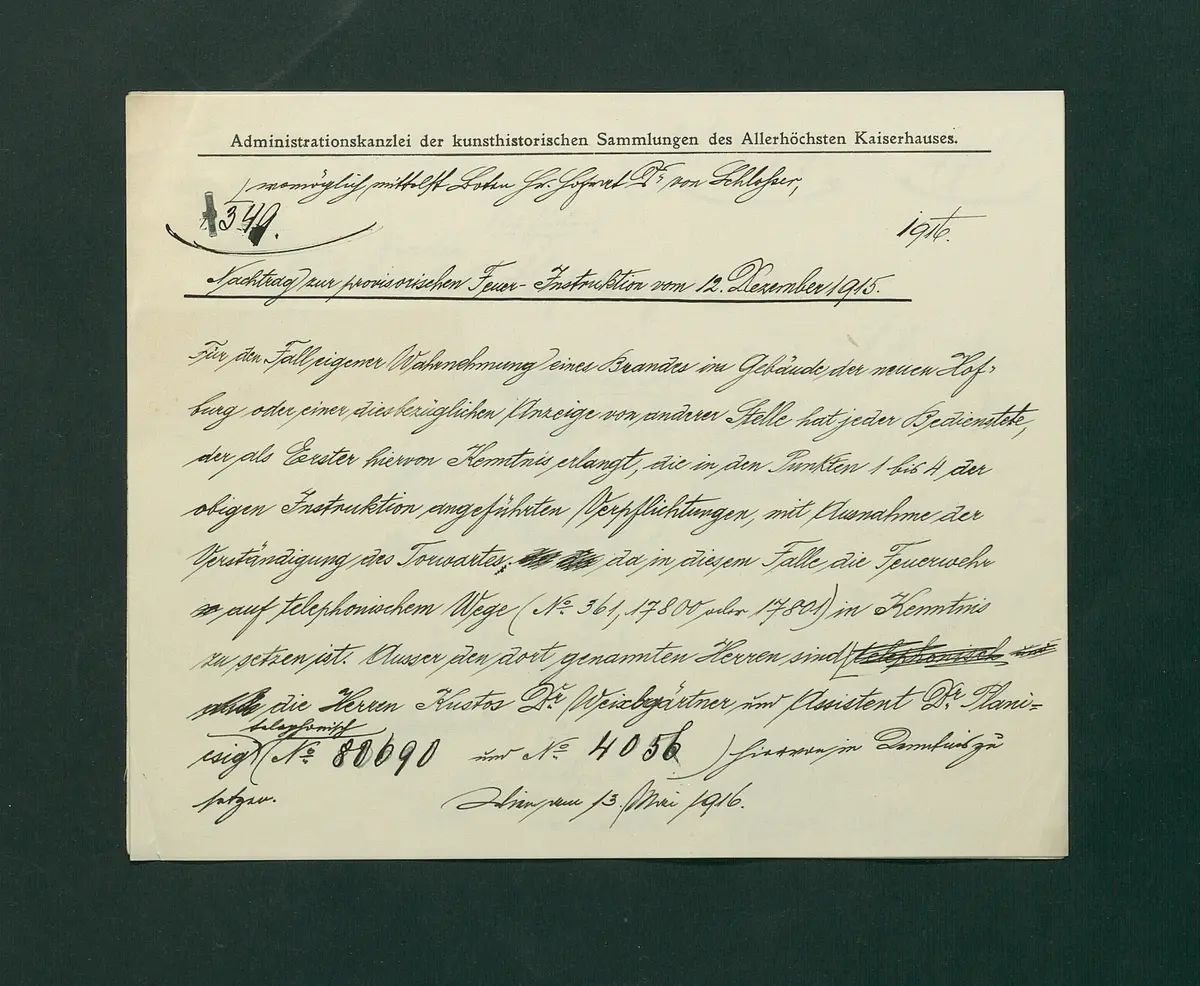 Administrationskanzlei der kunsthistorischen Sammlungen des Allerhöchsten Kaiserhauses.
) womöglich mittelst Boten Hr. Hofrat Dr von Schlosser,
1349.
1916.
Nachtrag zur provisorischen Feuer-Instruktion vom 12. Dezember 1915.
Für den Fall eigener Wahrnehmung eines Brandes im Gebäude der neuen Hof-
burg oder einer diesbezüglichen Anzeige von anderer Stelle hat jeder Bedienstete,
der als Erster hiervon Kenntnis erlangt, die in den Punkten 1 bis 4 der
obigen Instruktion angeführten Verpflichtungen, mit Ausnahme der
Verständigung des Torwartes, da in diesem Falle die Feuerwehr
auf telephonischem Wege (No 361, 17800 oder 17801) in Kenntnis
zu setzen ist. Ausser den dort genannten Herren sind telephonisch und
die Herren Kustos Dr Weixlgärtner und Assistent Dr Plani-
telephonisch
scig (No 80690 und No 4056 ) hiervon in Kenntnis zu
setzen. Wien, am 13. Mai 1916.